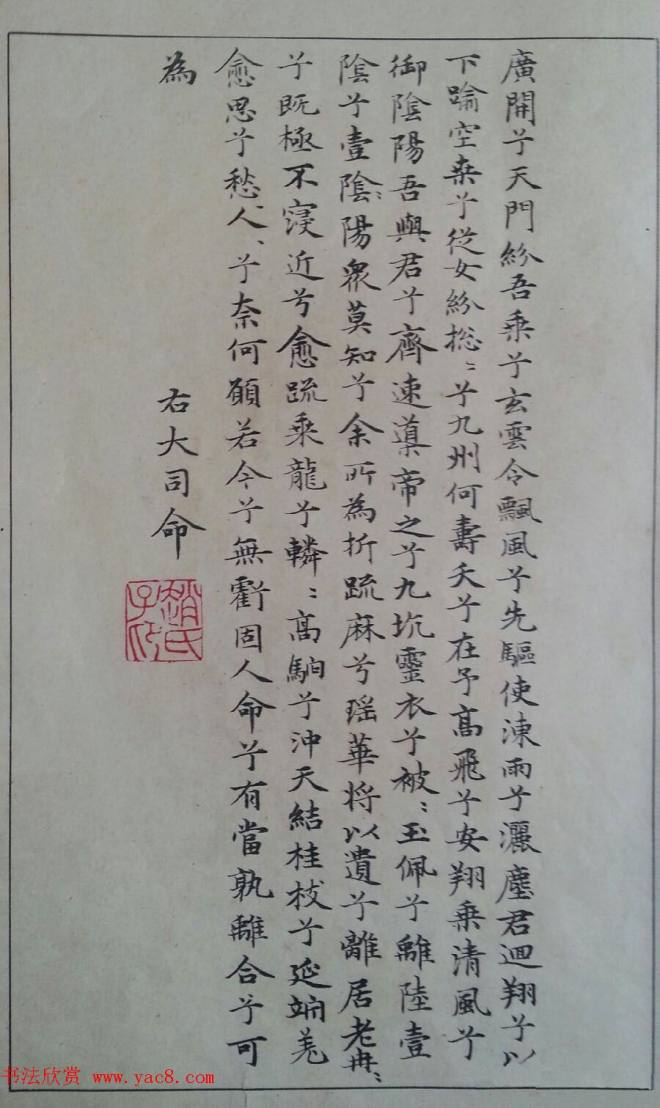 廣開兮天門紛吾乘兮玄雲令飄風兮先驅使涷雨兮灑塵君迴翔兮以
下踰空桒兮從女紛揔〻兮九州何壽夭兮在予高飛兮安翔乘清風兮
御陰陽吾與君兮齊速導帝之兮九坑靈衣兮被〻玉佩兮離陸壹
陰兮壹陰〻陽眾莫知兮余所為折疏麻兮瑶華将以遺兮離居老冉〻
兮既極不寖近兮愈疏乘龍兮轔〻高駒兮沖天結桂枝兮延竚羌
愈思兮愁人〻兮奈何願若今兮無虧固人命兮有當孰離合兮可
為
右大司命
趙氏
子
书法欣赏 www.yac8.com